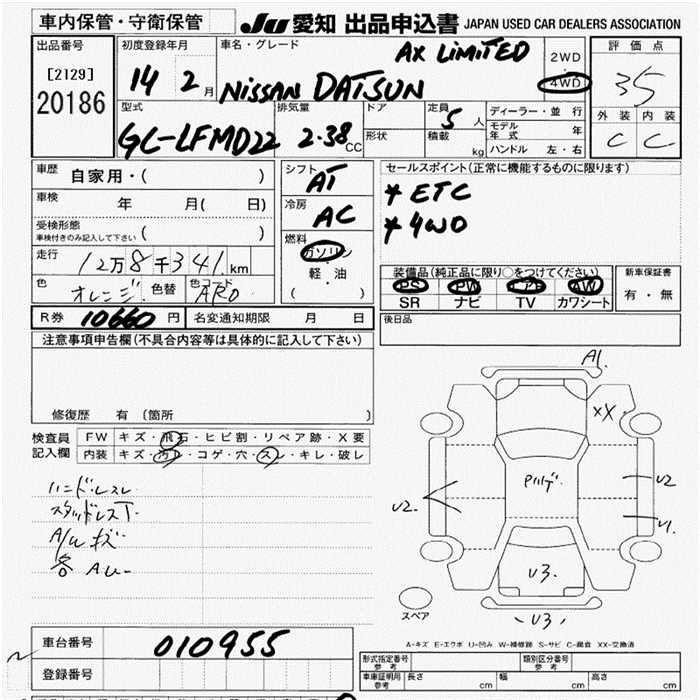 車内保管・守衛保管 JU 愛知 出品申込書 JAPAN USED CAR DEALERS ASSOCIATION
出品番号 [2129] 20186
初度登録年月 14 2月
車名・グレード AX LIMITED NISSAN DATSUN
2WD・4WD
評価点 35
外装 C 内装 C
型式 GC-LFMD22
排気量 2.38CC
ドア 形状
定員 5人
積載 kg
ディーラー・並行
モデル年式 年
ハンドル 左・右
車歴 自家用・( )
車検 年 月( 日)
受検形態 ( )
車検付きのみ記入して下さい
走行 12万8千341km
色 オレンジ 色替 色コード ARO
シフト AT
冷房 AC
燃料 ガソリン・軽・油
( )
セールスポイント(正常に機能するものに限ります)
* ETC
* 4WD
装備品(純正品に限り○をつけてください)
PS PW エアB AW
SR ナビ TV カワシート
新車保証書
有・無
R券 10660円 名変通知期限 月 日
後日品
注意事項申告欄(不具合内容等は具体的に記入して下さい)
修復歴 有 〔箇所 〕
検査員記入欄 FW キズ・飛石・ヒビ割・リペア跡・X要
内装 キズ・汚レ・コゲ・穴・スレ・キレ・破レ
ハンドルスレ
A/W キズ
各 AU
A1
XX
U2
U2
U1
U3
U3
スペア
A-キズ E-エクボ U-凹み W-補修跡 S-サビ C-腐食 XX-交換済
車台番号 010955
登録番号
形式指定番号 参考 類別区分番号 参考
車庫証明用 参考 長さ cm 幅 cm 高さ cm